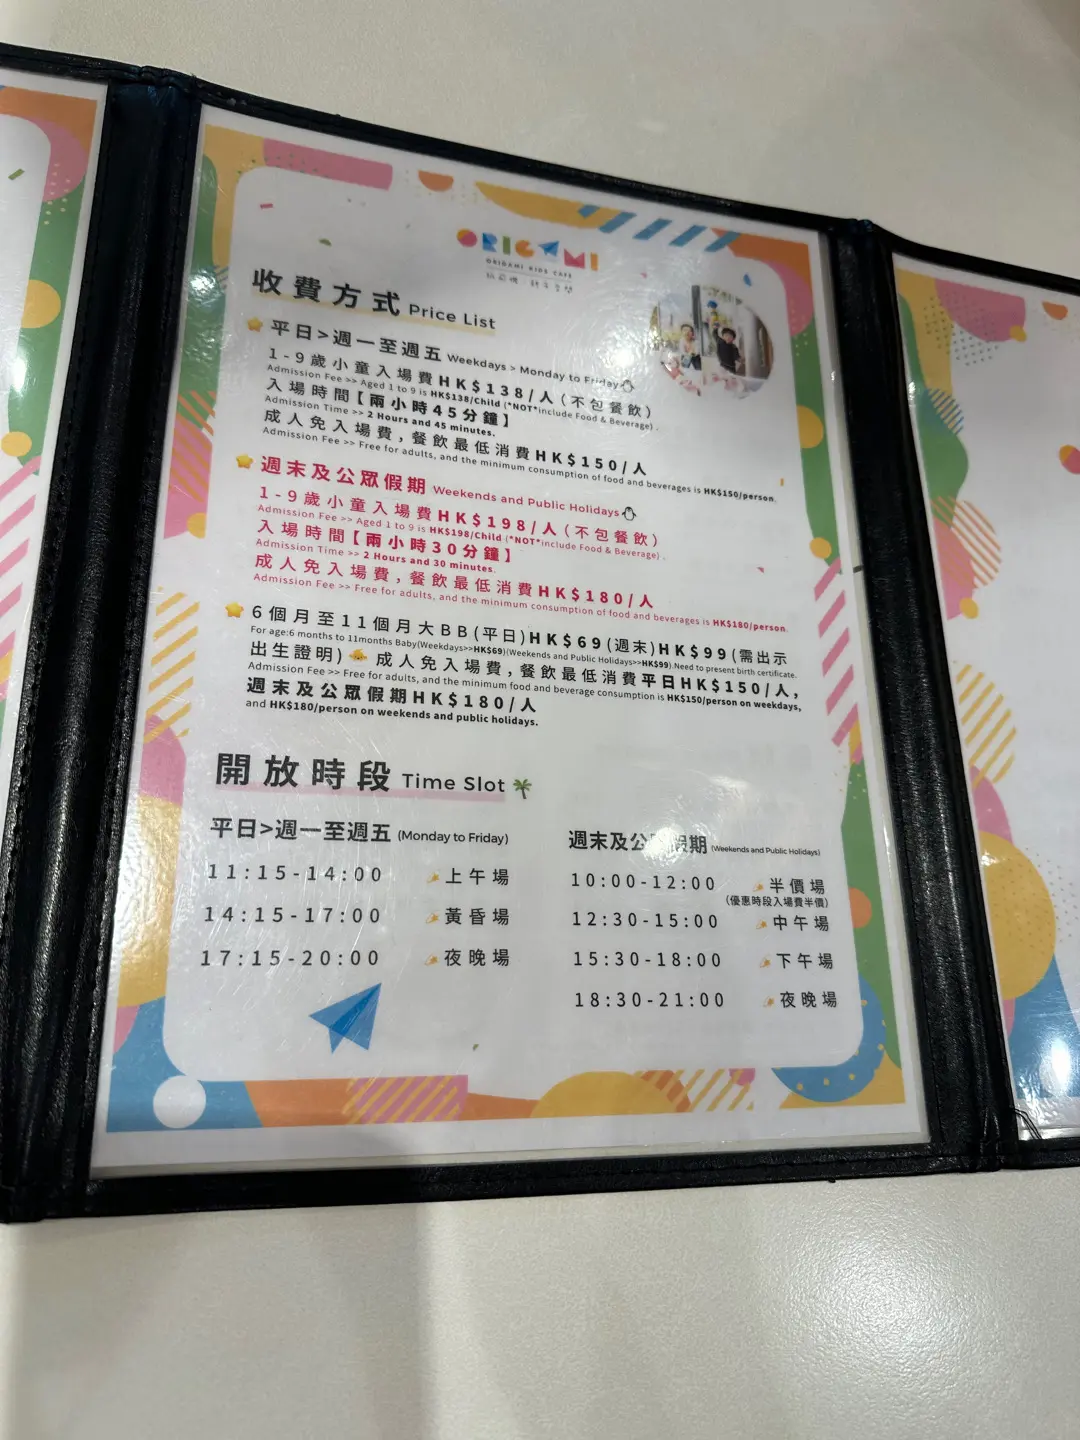 ORIGAMI
ORIGAMI KIDS CAFE
收費方式 Price List
平日>週一至週五 Weekdays > Monday to Friday
1-9歲小童入場費HK$138/人(不包餐飲)
Admission Fee >> Aged 1 to 9 is HK$138/Child (*NOT*include Food & Beverage).
入場時間【兩小時45分鐘】
Admission Time >> 2 Hours and 45 minutes.
成人免入場費,餐飲最低消費HK$150/人
Admission Fee >> Free for adults, and the minimum consumption of food and beverages is HK$150/person.
週末及公眾假期 Weekends and Public Holidays
1-9歲小童入場費HK$198/人(不包餐飲)
Admission Fee >> Aged 1 to 9 is HK$198/Child (*NOT*include Food & Beverage).
入場時間【兩小時30分鐘】
Admission Time >> 2 Hours and 30 minutes.
成人免入場費,餐飲最低消費HK$180/人
Admission Fee >> Free for adults, and the minimum consumption of food and beverages is HK$180/person.
6個月至11個月大BB(平日)HK$69(週末)HK$99(需出示
For age:6 months to 11months Baby(Weekdays>>HK$69)(Weekends and Public Holidays>>HK$99).Need to present birth certificate.
出生證明) 成人免入場費,餐飲最低消費平日HK$150/人,
Admission Fee >> Free for adults, and the minimum food and beverage consumption is HK$150/person on weekdays,
週末及公眾假期HK$180/人
and HK$180/person on weekends and public holidays.
開放時段 Time Slot
平日>週一至週五 (Monday to Friday)
11:15-14:00 上午場
14:15-17:00 黃昏場
17:15-20:00 夜晚場
週末及公眾假期 (Weekends and Public Holidays)
10:00-12:00 半價場
(優惠時段入場費半價)
12:30-15:00 中午場
15:30-18:00 下午場
18:30-21:00 夜晚場